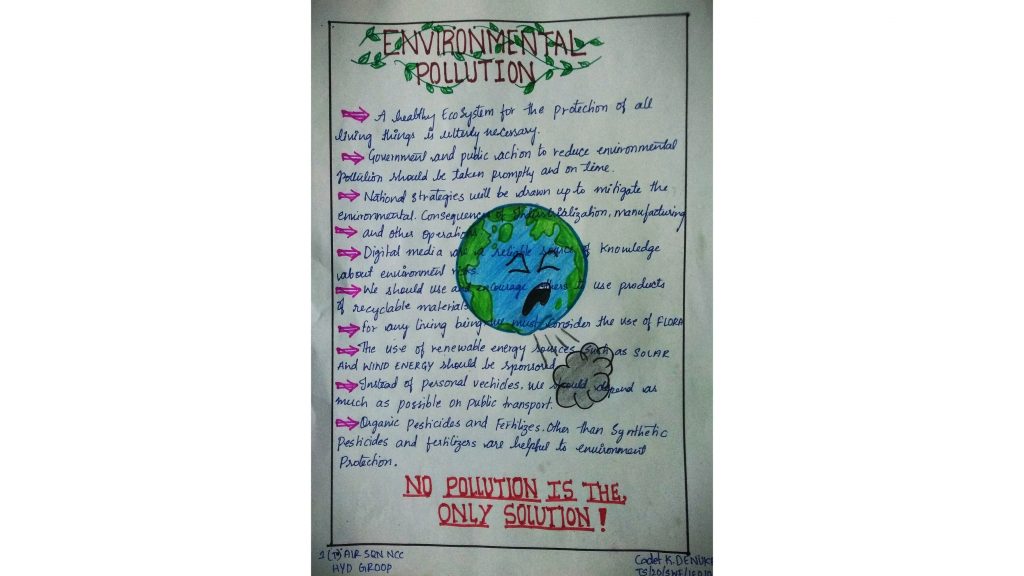 ENVIRONMENTAL
POLLUTION
A healthy EcoSystem for the protection of all
living things is utterly necessary.
Government and public action to reduce environmental
Pollution should be taken promptly and on time.
National Strategies will be drawn up to mitigate the
environmental. Consequences of Industrialization, manufacturing
and other Operations
Digital media are a reliable source of Knowledge
about environment risks.
We should use and encourage others to use products
of recyclable materials
For any living being we must consider the use of FLORA
The use of renewable energy sources such as SOLAR
AND WIND ENERGY should be sponsored
Instead of personal vechicles, we should depend as
much as possible on public transport.
Organic Pesticides and Fertilizes. Other than Synthetic
Pesticides and fertilizers are helpful to environment
Protection.
NO POLLUTION IS THE,
ONLY SOLUTION!
AIR SQN NCC
HYD GROOP
Cadet K. DENUK